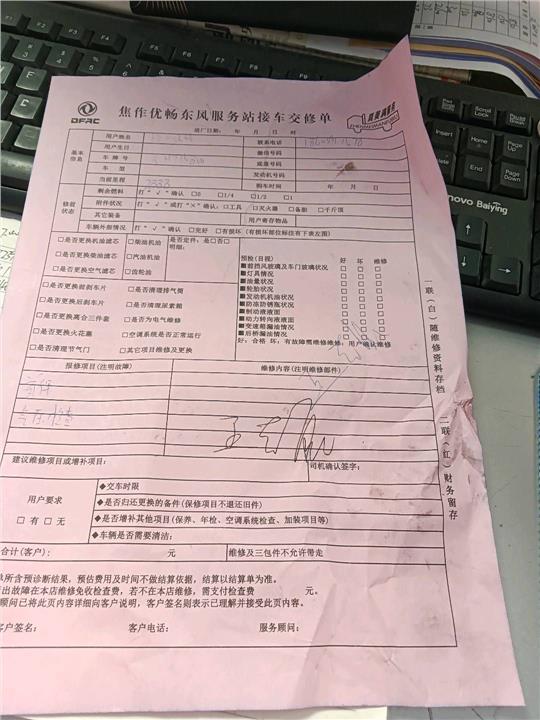 DFAC
焦作优畅东风服务站接车交修单
进厂日期： 年 月 日 时
基本信息
用户姓名 联系电话
用户生日 微信号码
车牌号 底盘号码
车型 发动机号码
当前里程 3333 购车时间 年 月 日
修前状态
剩余燃料 打“√”确认 □0 □1/4 □1/2 □1
附件状况 打“√”或打“×”确认：□工具 □灭火器 □备胎 □千斤顶
其它装备 用户寄存物品
车辆外部情况 打“√”确认 □完好 □有损坏（有损部位标注在下表左图）
□是否更换机油滤芯 □柴油机油 是否定件：是□否□
明细：
□是否更换柴油滤芯 □汽油机油
□是否更换空气滤芯 □齿轮油
□是否更换前刹车片 □是否清理排气筒
□是否更换后刹车片 □是否清理尿素箱
□是否更换离合三件套 □是否为电气维修
□是否更换火花塞 □空调系统是否正常运行
□是否清理节气门 □其它项目维修及更换
预检(目视) 好 坏 维修
■前挡风玻璃及车门玻璃状况 □ □ □
■灯具情况 □ □ □
■油量状况 □ □ □
■轮胎状况 □ □ □
■发动机机油状况 □ □ □
■防冻防锈瓶状况 □ □ □
■制动液液面 □ □ □
■动力转向液液面 □ □ □
■变速箱漏油情况 □ □ □
■后桥漏油情况 □ □ □
好：合格 坏：有故障需维修维修：用户确认维修
报修项目(注明故障) 维修内容(注明维修部件)
建议维修项目或增补项目： 司机确认签字：
用户要求
□有 □无
◆交车时限
◆是否归还更换的备件(保修项目不退还旧件)
◆是否增补其他项目(保养、年检、空调系统检查、加装项目等)
◆车辆是否需要清洁：
合计(客户)： 元 维修及三包件不允许带走
单所含预诊断结果，预估费用及时间不做结算依据，结算以结算单为准。
出故障在本店维修免收检查费，若不在本店维修，需支付检查费 元。
顾问已将此页内容详细向客户说明，客户签名则表示已理解并接受此页内容。
客户签名： 客户电话： 服务顾问：
一联（白）随维修资料存档
二联（红）财务留存
Lenovo Baiying